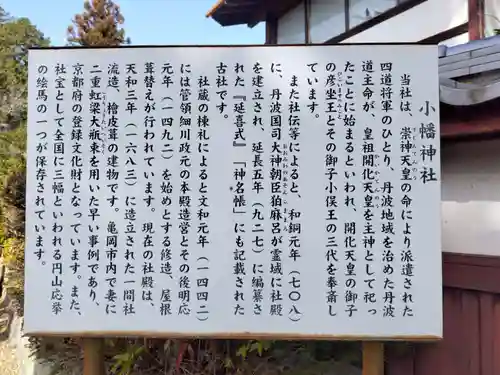 小幡神社
当社は、崇神天皇の命により派遣された
四道将軍のひとり、丹波地域を治めた丹波
道主命が、皇祖開化天皇を主神として祀っ
たことに始まるといわれ、開化天皇の御子
の彦坐王とその御子小俣王の三代を奉斎し
ています。
また社伝等によると、和銅元年（七〇八）
に、丹波国司大神朝臣狛麻呂が霊域に社殿
を建立され、延長五年（九二七）に編纂さ
れた『延喜式』「神名帳」にも記載された
古社です。
社蔵の棟札によると文和元年（一四四二）
には管領細川政元の本殿造営とその後明応
元年（一四九二）を始めとする修造、屋根
葺替えが行われています。現在の社殿は、
天和三年（一六八三）に造立された一間社
流造、檜皮葺の建物です。亀岡市内で妻に
二重虹梁大瓶束を用いた早い事例であり、
京都府の登録文化財となっています。また、
社宝として全国に三幅といわれる円山応挙
の絵馬の一つが保存されています。